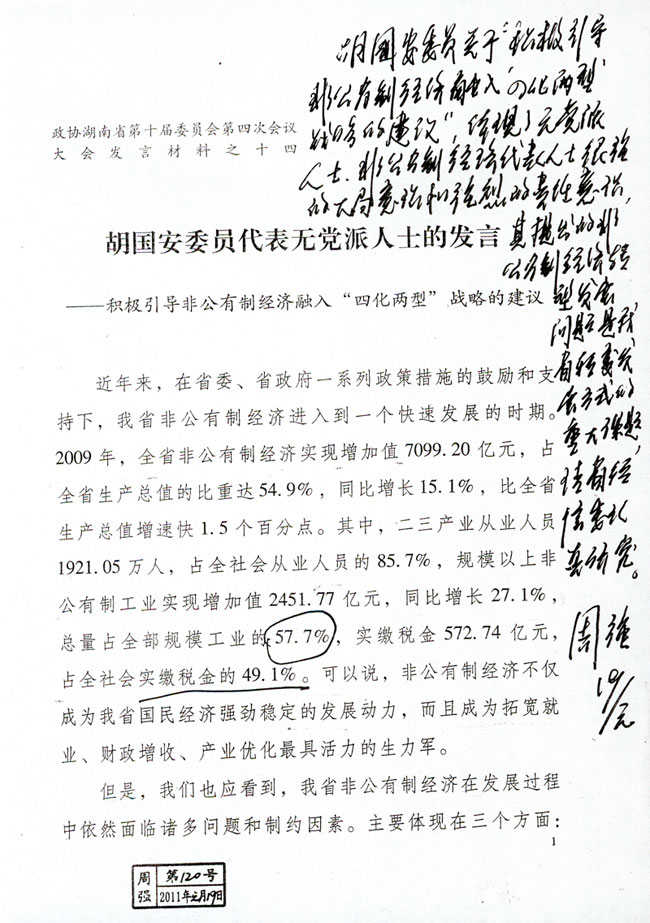 胡国安委员关于“积极引导
非公有制经济融入‘四化两型’
战略的建议”，体现了无党派
人士、非公有制经济代表人士很强
的大局意识和强烈的责任意识，
其提出的非
公有制经济转
型发展
问题是我
省转变发
展方式的
重大课题，
请省经
信委认
真研究。
周强
19/元
政协湖南省第十届委员会第四次会议
大会发言材料之十四
胡国安委员代表无党派人士的发言
——积极引导非公有制经济融入“四化两型”战略的建议
近年来，在省委、省政府一系列政策措施的鼓励和支
持下，我省非公有制经济进入到一个快速发展的时期。
2009年，全省非公有制经济实现增加值7099.20亿元，占
全省生产总值的比重达54.9%，同比增长15.1%，比全省
生产总值增速快1.5个百分点。其中，二三产业从业人员
1921.05万人，占全社会从业人员的85.7%，规模以上非
公有制工业实现增加值2451.77亿元，同比增长27.1%，
总量占全部规模工业的57.7%，实缴税金572.74亿元，
占全社会实缴税金的49.1%。可以说，非公有制经济不仅
成为我省国民经济强劲稳定的发展动力，而且成为拓宽就
业、财政增收、产业优化最具活力的生力军。
但是，我们也应看到，我省非公有制经济在发展过程
中依然面临诸多问题和制约因素。主要体现在三个方面：
1
周强
第120号
2011年元月19日